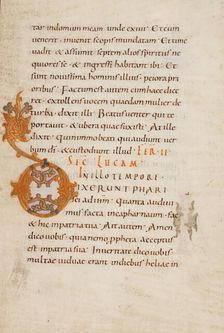 tar indomum meam unde exiui · Etcum
uenerit · inuenit scopis mundatam · Et tunc
uadit & assumit septem alios spiritus ne
quiores se · & ingressi habitant ibi · Et
sunt nouissima hominis illius · peiora pri
oribus · Factum est autem cum haec dice
ret · extollens uocem quaedam mulier de
turba · dixit illi · Beatus uenter qui te
portauit · & ubera quae suxisti · At ille
dixit · Quinimmo beati qui audiunt uer
bum di · & custodiunt illud ·
SEC LUCAM ·
IN ILLO TEMPORE
DIXERUNT PHARI
sei ad ium · Quanta audiui
mus facta in capharnaum · fac
& hic in patria tua · Ait autem · Amen
dico uobis · quia nemo ppheta acceptus
est in patria sua · In ueritate dico uobis
multae uiduae erant in diebus heliae in